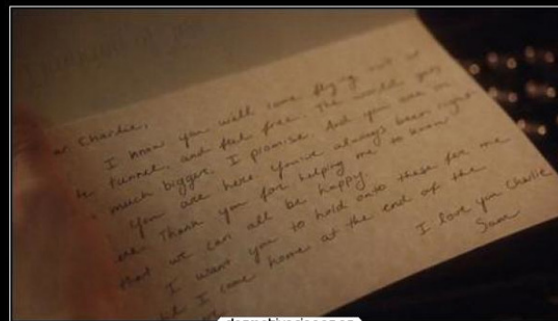 Thinking of you
ar Charlie,
I know you will come flying out of
he tunnel, and feel free. The world
much bigger. I promise. And you are in
You are here. You've always been right
me. Thank you for helping me to know
that we can all be happy.
I want you to hold onto these for me
til I come home at the end of the
I love you Charlie
Sam